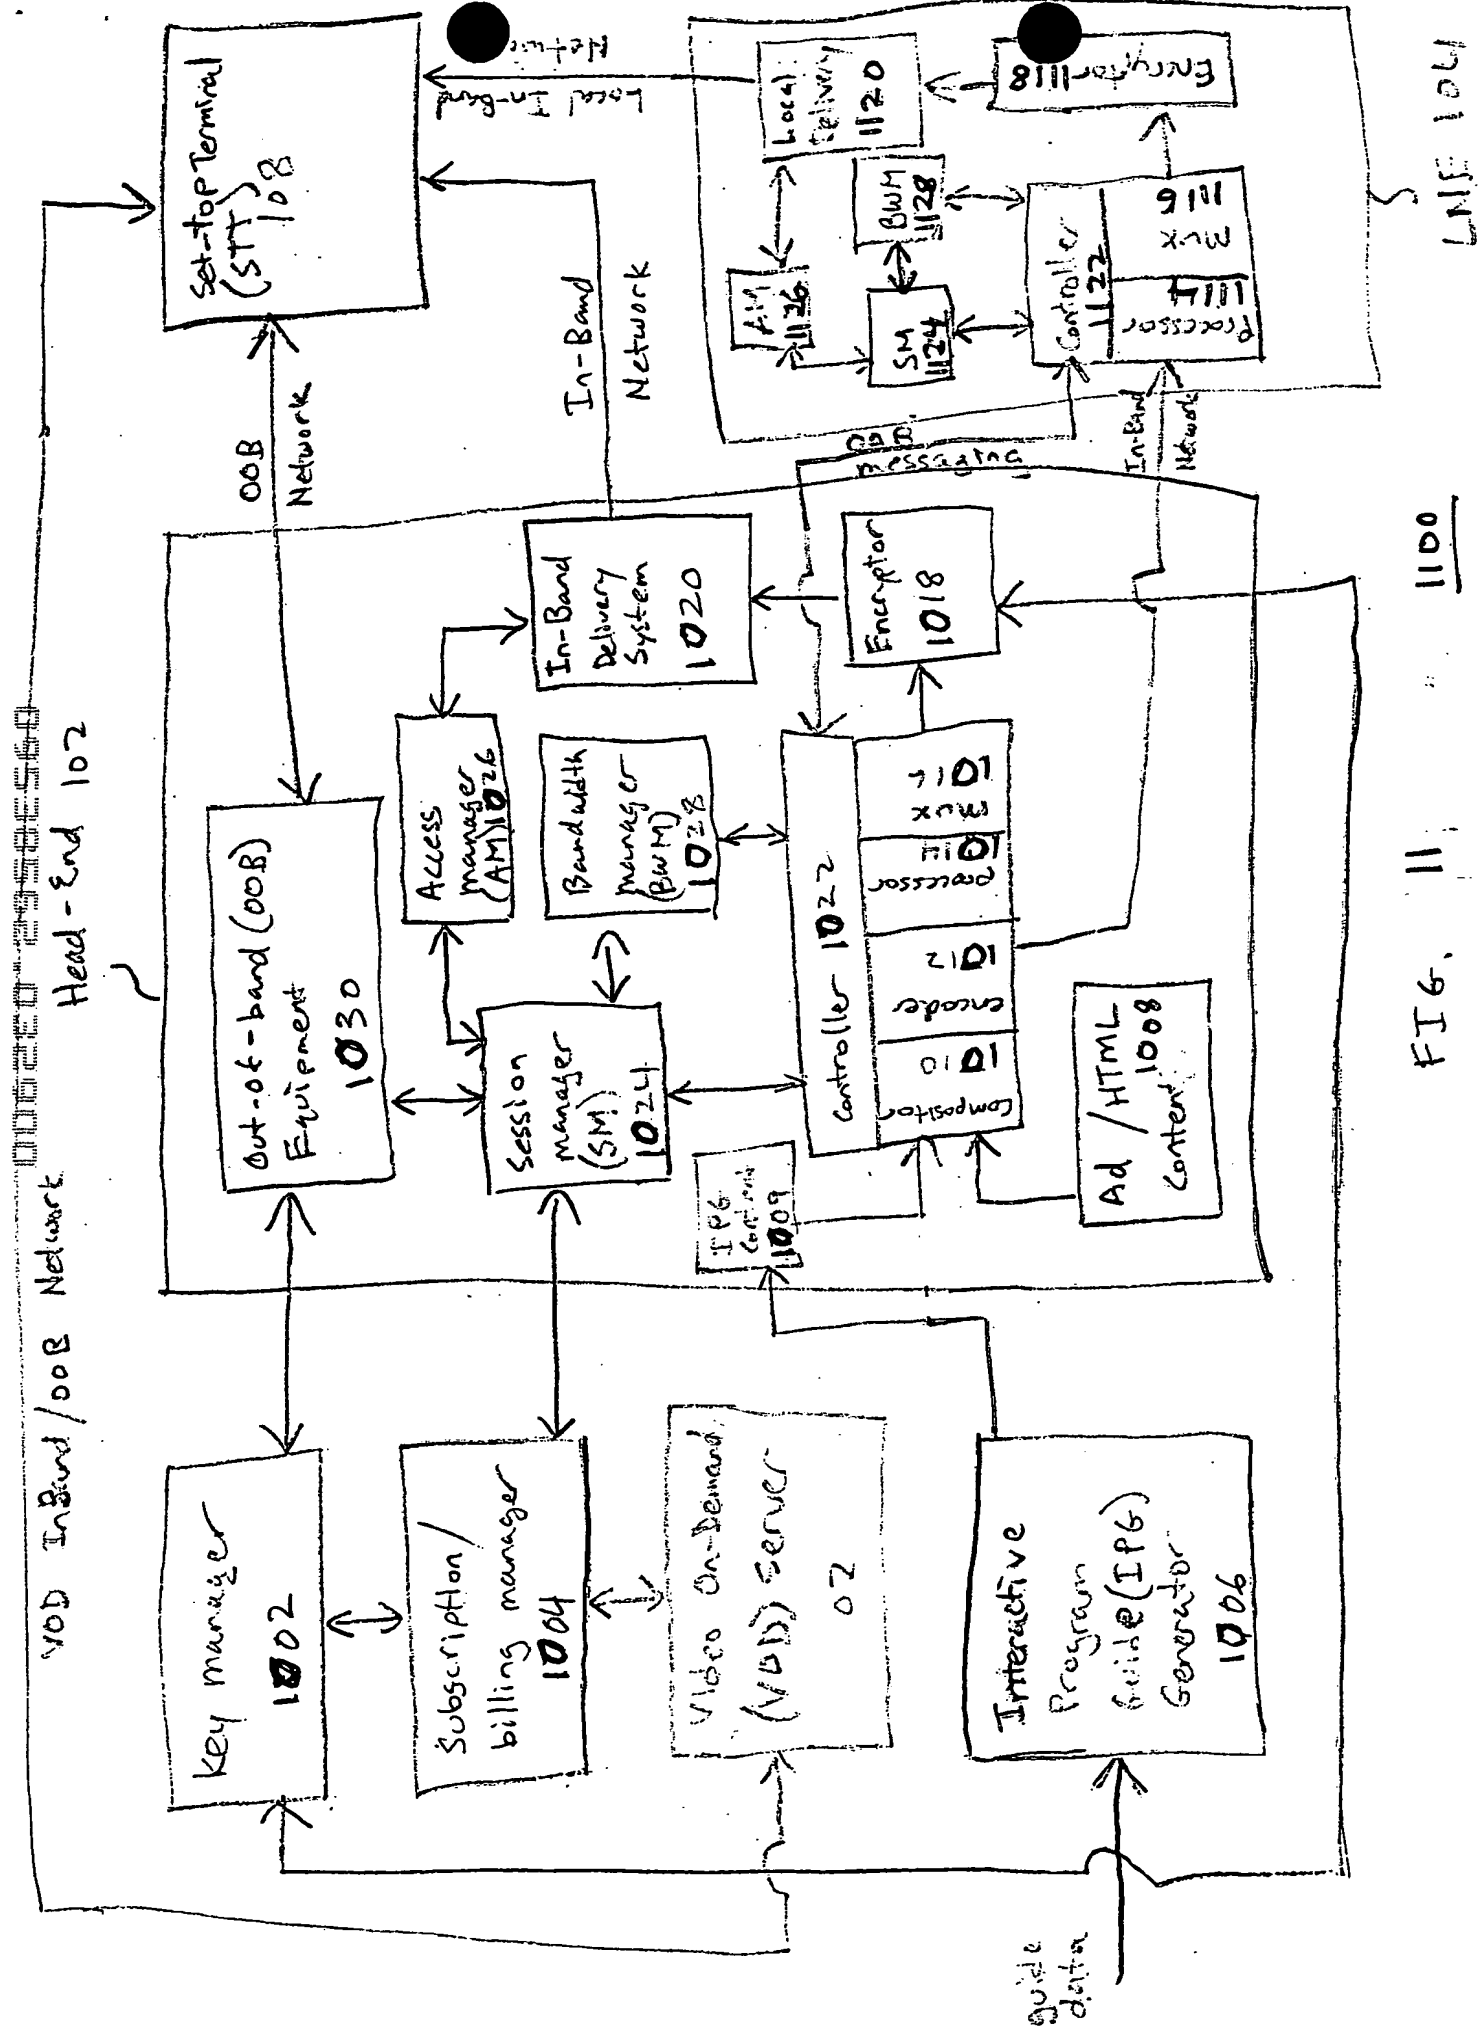 VOD InBand/OOB Network
Head-End 102
Key manager
1002
Subscription/
billing manager
1004
Video On-Demand
(VOD) Server
02
Interactive
Program
Guide (IPG)
Generator
1006
guide
data
Out-of-band (OOB)
Equipment
1030
Access
manager
(AM) 1026
Session
manager
(SM)
1024
Bandwidth
manager
(BWM)
1028
In-Band
Delivery
System
1020
Encryptor
1018
Controller 1022
compositor
1010
encoder
1012
processor
1014
mux
1016
IPG
Content
1009
Ad/HTML
1008
Content
OOB
Network
In-Band
Network
Set-top Terminal
(STT)
108
Local In-Band
Network
OOB
messaging
In-Band
Network
Local
Delivery
1120
AM
1126
BWM
1128
SM
1124
Controller
1122
Processor
1114
mux
1116
Encryptor
1118
LNE 104
FIG. 11
1100